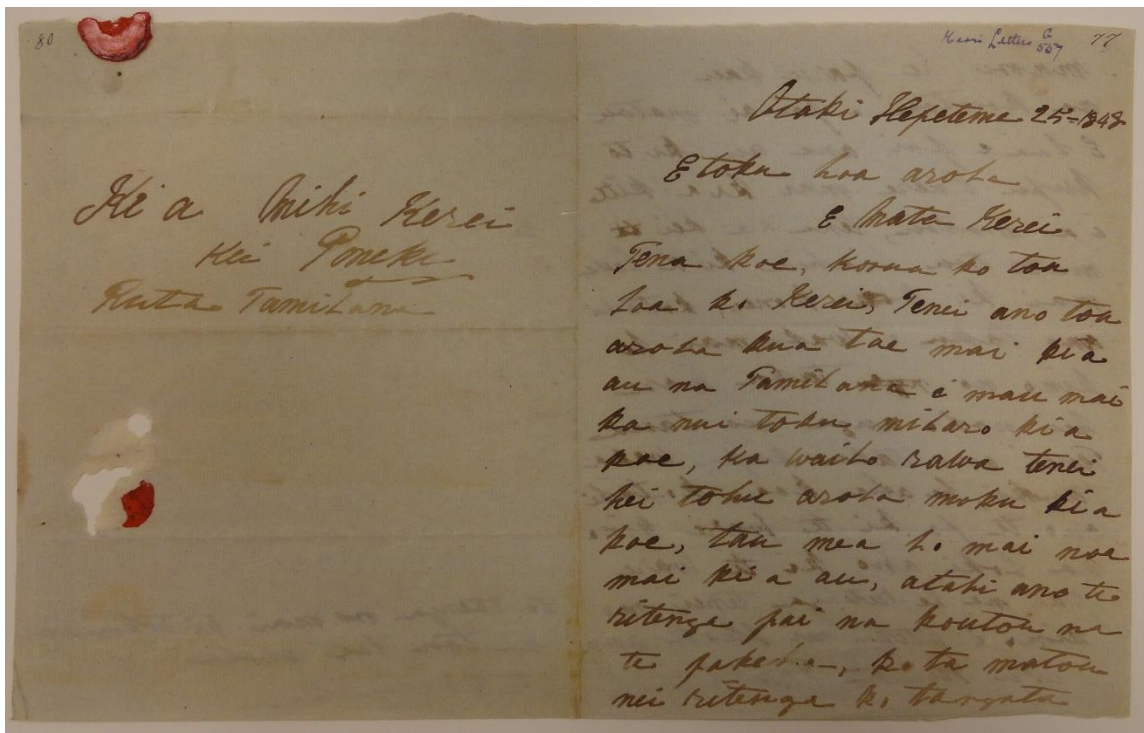 80
Ki a Mihi Kerei
Kei Poneke
Ruta Tamihana
Maori Letters G
557
77
Otaki Hepetema 25-1848
E toku hoa aroha
E Mata Kerei
Tena koe, korua ko tou
hoa ko Kerei, Tenei ano tou
aroha kua tae mai ki a
au na Tamihana i mau mai
ka nui toku miharo ki a
koe, ka waiho rawa tenei
hei tohu aroha moku ki a
koe, tau mea ho mai noa
mai ki a au, atahi ano te
ritenga pai na koutou na
te pakeha, ko ta matou
nei ritenga ko tangata